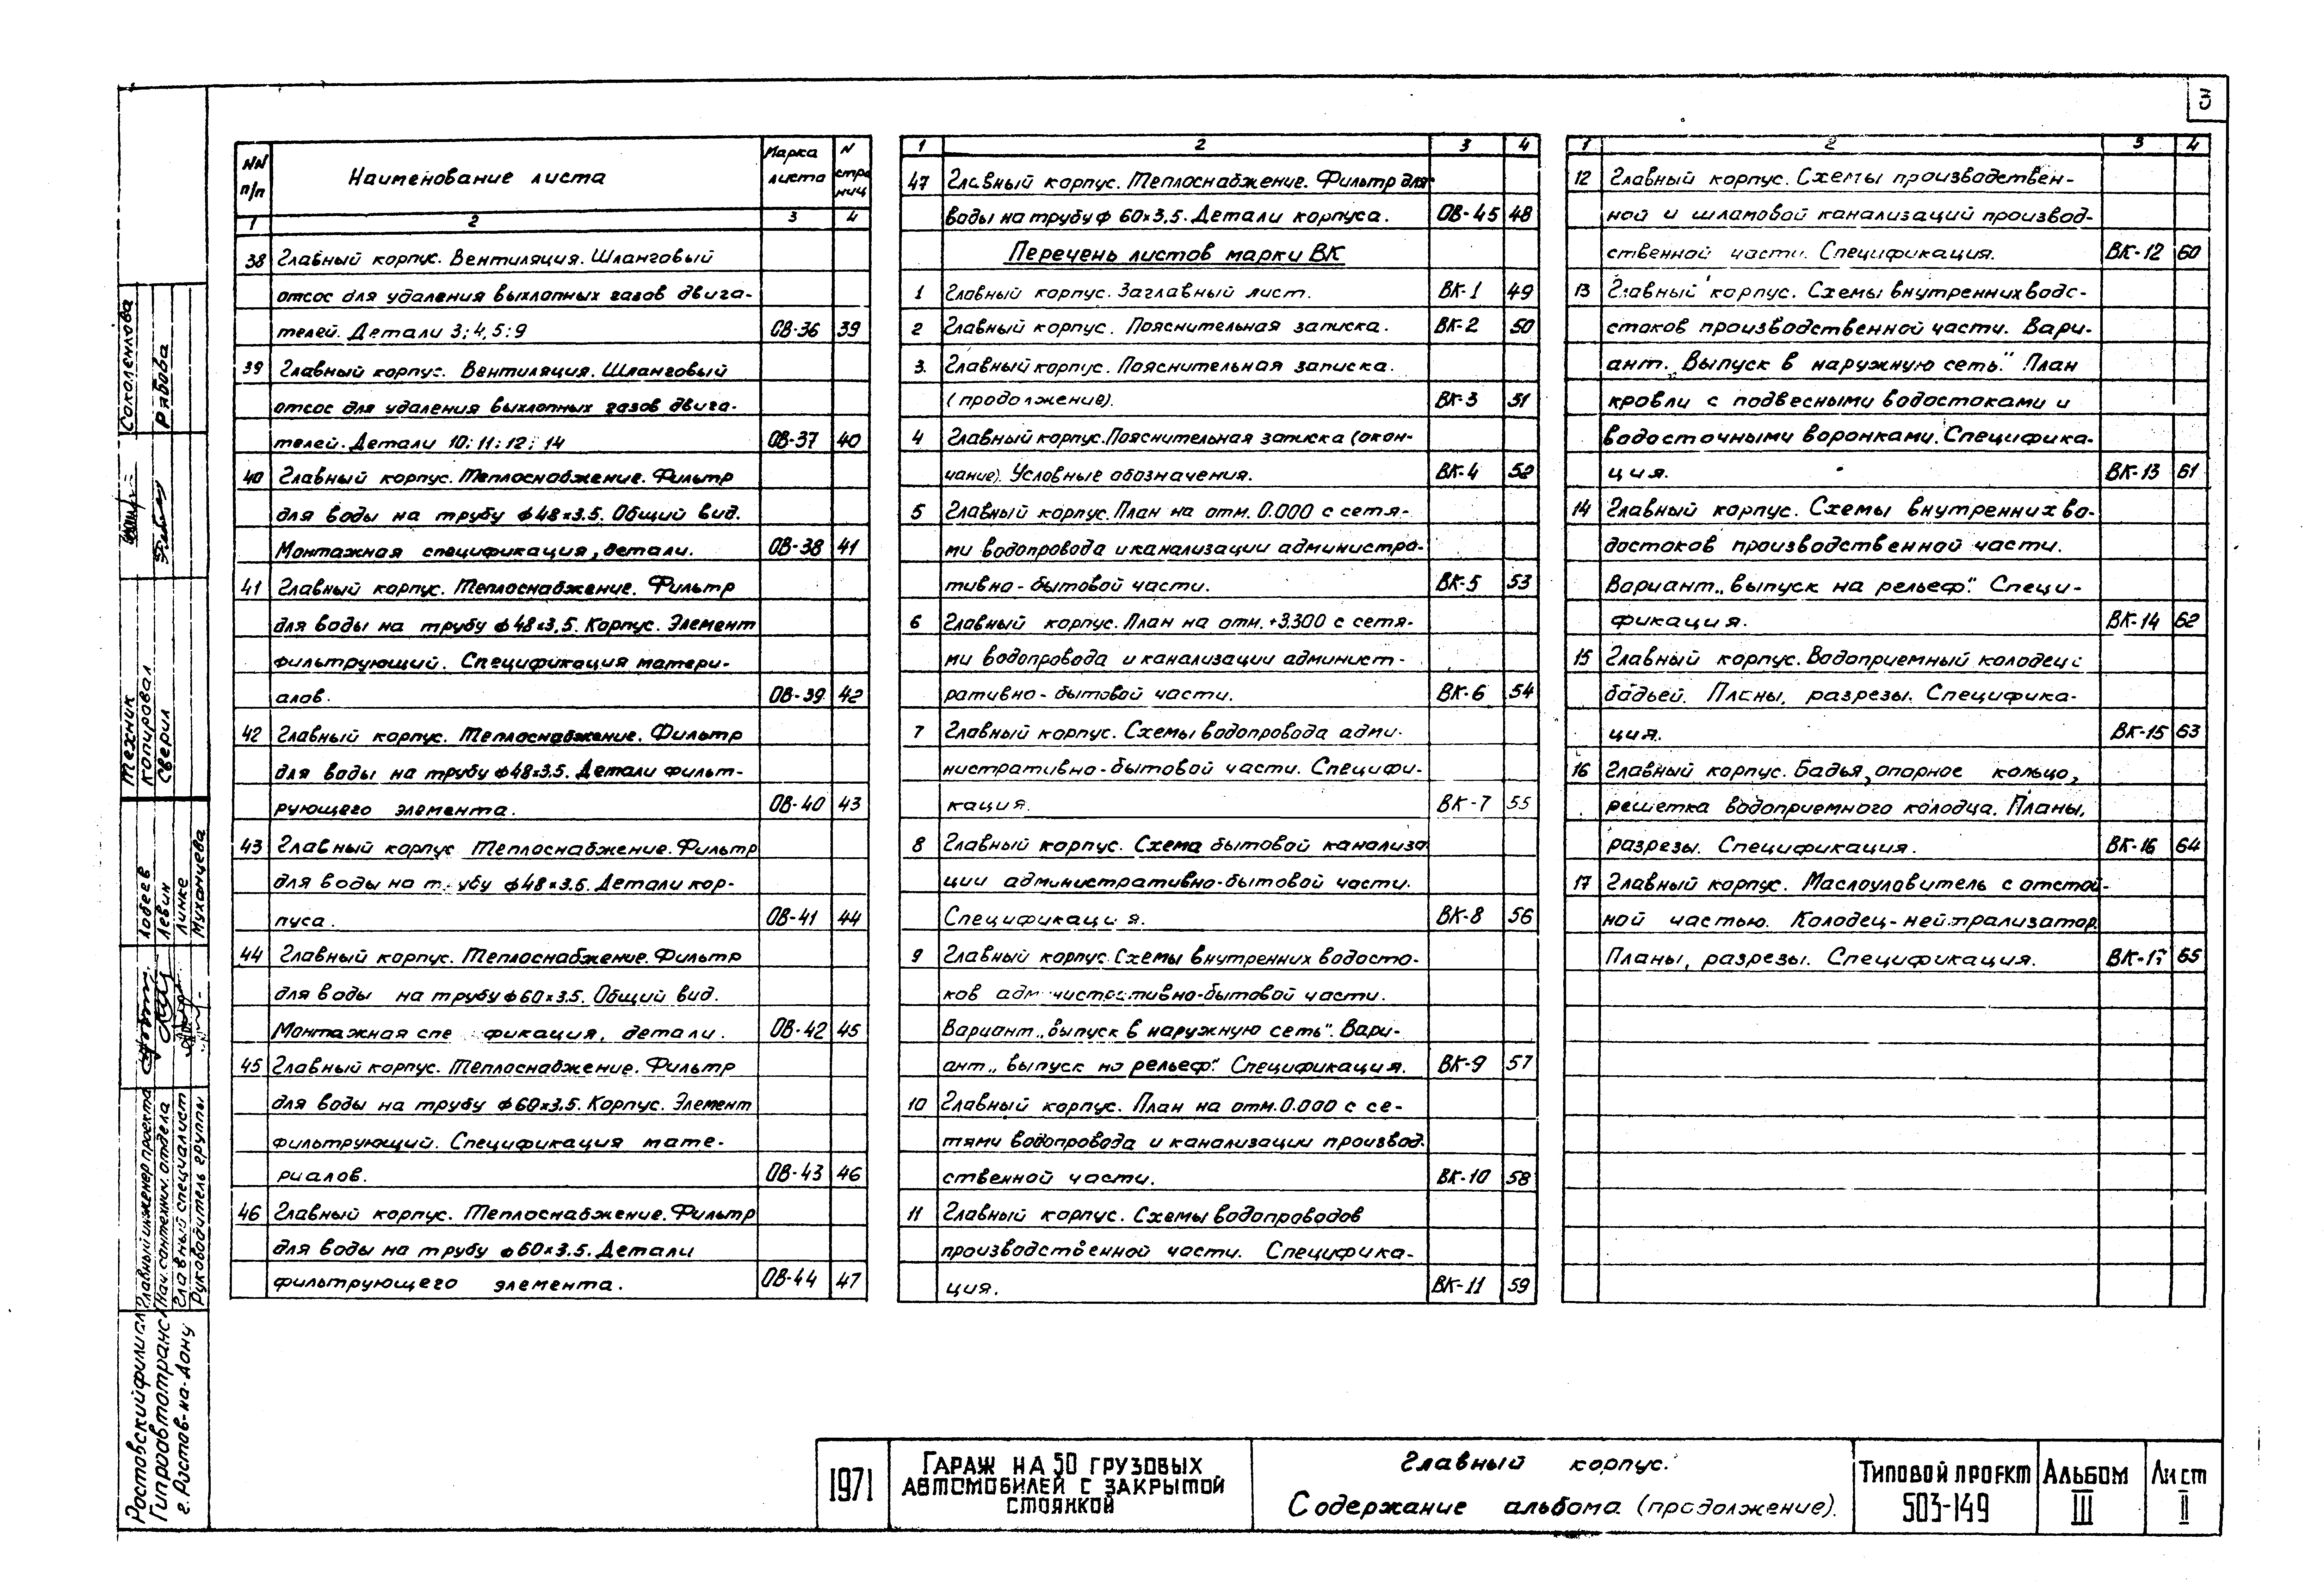 3
NN п/п Наименование листа Марка листа N страниц
1 2 3 4
38 Главный корпус. Вентиляция. Шланговый
отсос для удаления выхлопных газов двига-
телей. Детали 3; 4, 5; 9 ОВ-36 39
39 Главный корпус. Вентиляция. Шланговый
отсос для удаления выхлопных газов двига-
телей. Детали 10; 11; 12; 14 ОВ-37 40
40 Главный корпус. Теплоснабжение. Фильтр
для воды на трубу ф48×3.5. Общий вид.
Монтажная спецификация, детали. ОВ-38 41
41 Главный корпус. Теплоснабжение. Фильтр
для воды на трубу ф48×3,5. Корпус. Элемент
фильтрующий. Спецификация матери-
алов. ОВ-39 42
42 Главный корпус. Теплоснабжение. Фильтр
для воды на трубу ф48×3.5. Детали фильт-
рующего элемента. ОВ-40 43
43 Главный корпус Теплоснабжение. Фильтр
для воды на трубу ф48×3.5. Детали кор-
пуса. ОВ-41 44
44 Главный корпус. Теплоснабжение. Фильтр
для воды на трубу ф60×3.5. Общий вид.
Монтажная спецификация, детали. ОВ-42 45
45 Главный корпус. Теплоснабжение. Фильтр
для воды на трубу ф60×3.5. Корпус. Элемент
фильтрующий. Спецификация мате-
риалов. ОВ-43 46
46 Главный корпус. Теплоснабжение. Фильтр
для воды на трубу ф60×3.5. Детали
фильтрующего элемента. ОВ-44 47
1 2 3 4
47 Главный корпус. Теплоснабжение. Фильтр для
воды на трубу ф 60×3,5. Детали корпуса. ОВ-45 48
Перечень листов марки ВК
1 Главный корпус. Заглавный лист. ВК-1 49
2 Главный корпус. Пояснительная записка. ВК-2 50
3. Главный корпус. Пояснительная записка.
(продолжение). ВК-3 51
4 Главный корпус. Пояснительная записка (окон-
чание). Условные обозначения. ВК-4 52
5 Главный корпус. План на отм. 0.000 с сетя-
ми водопровода и канализации администра-
тивно-бытовой части. ВК-5 53
6 Главный корпус. План на отм. +3.300 с сетя-
ми водопровода и канализации админист-
ративно-бытовой части. ВК-6 54
7 Главный корпус. Схемы водопровода адми-
нистративно-бытовой части. Специфи-
кация. ВК-7 55
8 Главный корпус. Схема бытовой канализа
ции административно-бытовой части.
Спецификация. ВК-8 56
9 Главный корпус. Схемы внутренних водосто-
ков административно-бытовой части.
Вариант „выпуск в наружную сеть". Вари-
ант „выпуск на рельеф". Спецификация. ВК-9 57
10 Главный корпус. План на отм. 0.000 с се-
тями водопровода и канализации производ-
ственной части. ВК-10 58
11 Главный корпус. Схемы водопроводов
производственной части. Специфика-
ция. ВК-11 59
1 2 3 4
12 Главный корпус. Схемы производствен-
ной и шламовой канализаций производ-
ственной части. Спецификация. ВК-12 60
13 Главный корпус. Схемы внутренних водо-
стоков производственной части. Вари-
ант „Выпуск в наружную сеть." План
кровли с подвесными водостоками и
водосточными воронками. Специфика-
ция. ВК-13 61
14 Главный корпус. Схемы внутренних во-
достоков производственной части.
Вариант „выпуск на рельеф". Специ-
фикация. ВК-14 62
15 Главный корпус. Водоприемный колодец с
бадьей. Планы, разрезы. Специфика-
ция. ВК-15 63
16 Главный корпус. Бадья, опорное кольцо,
решетка водоприемного колодца. Планы,
разрезы. Спецификация. ВК-16 64
17 Главный корпус. Маслоуловитель с отстой-
ной частью. Колодец-нейтрализатор.
Планы, разрезы. Спецификация. ВК-17 65
Ростовский филиал
Гипроавтотранс
г. Ростов-на-Дону
Главный инженер проекта Лобеев
Нач. сантехнич. отдела Левин
Главный специалист Линке
Руководитель группы Муханцева
Техник Соколенлова
Копировал
Сверил Рябова
1971
Гараж на 50 грузовых
автомобилей с закрытой
стоянкой
Главный корпус.
Содержание альбома (продолжение).
Типовой проект
503-149
Альбом
III
Лист
II